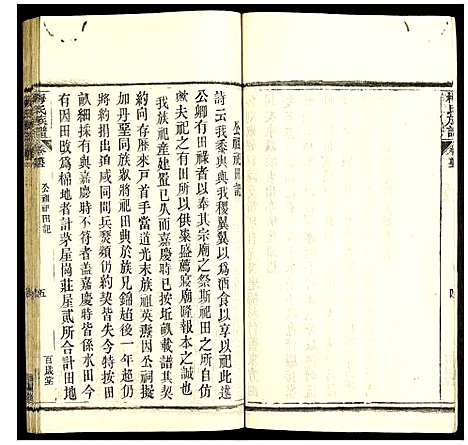 公祖祀田記
詩云我黍與與我稷翼翼以為酒食以享以祀此述
公卿有田祿者以奉其宗廟之祭斯祀田之所自仿
歟夫祀之有田所以供粢盛薦寢廟隆報本之誠也
我族祀產建置已久而嘉慶時已按坵畝載譜其契
約向存歷來戶首手當道光末族祖英齋因公祠擬
加丹堊同族眾將祀田典於族兄錦超後一年超仍
將約捐出迨咸同間兵燹類仍約契皆失今特按田
畝細採有與嘉慶時不符者蓋嘉慶時皆係水田今
有因田改為棉地者計茅屋崗莊屋貳所合計田地
公祖祀田記
五
百歲堂